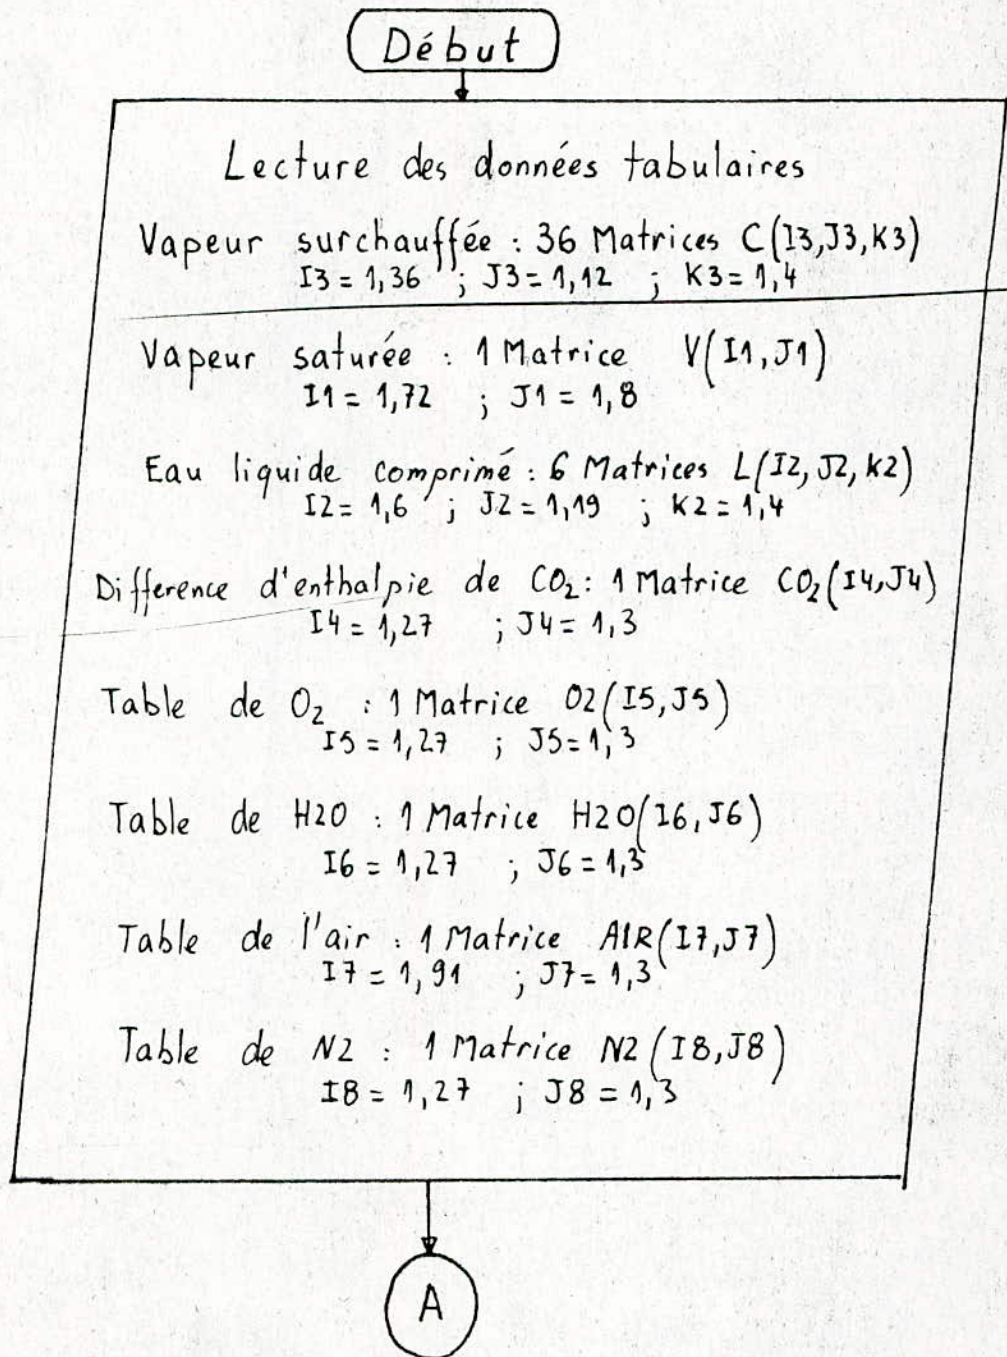 Début
Lecture des données tabulaires
Vapeur surchauffée : 36 Matrices C(I3,J3,K3)
I3 = 1,36 ; J3 = 1,12 ; K3 = 1,4
Vapeur saturée : 1 Matrice V(I1,J1)
I1 = 1,72 ; J1 = 1,8
Eau liquide comprimé : 6 Matrices L(I2,J2,K2)
I2 = 1,6 ; J2 = 1,19 ; K2 = 1,4
Difference d'enthalpie de CO₂ : 1 Matrice CO₂(I4,J4)
I4 = 1,27 ; J4 = 1,3
Table de O₂ : 1 Matrice O2(I5,J5)
I5 = 1,27 ; J5 = 1,3
Table de H2O : 1 Matrice H2O(I6,J6)
I6 = 1,27 ; J6 = 1,3
Table de l'air : 1 Matrice AIR(I7,J7)
I7 = 1,91 ; J7 = 1,3
Table de N2 : 1 Matrice N2(I8,J8)
I8 = 1,27 ; J8 = 1,3
A